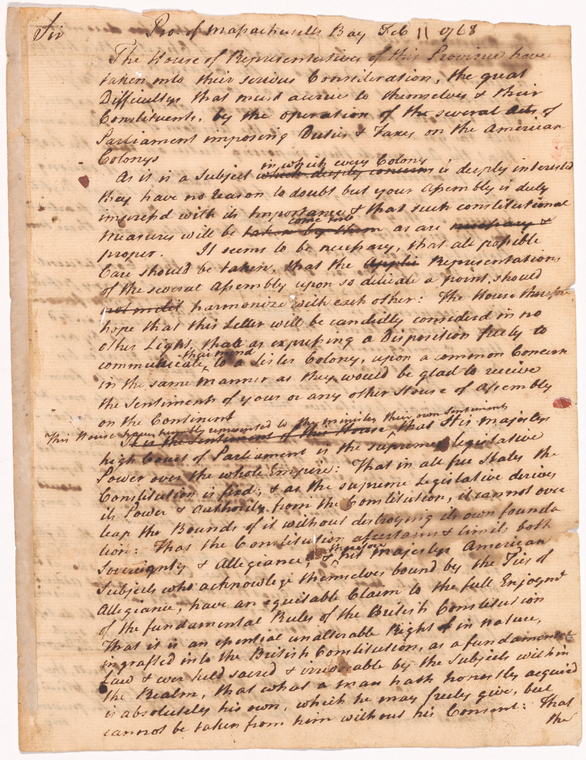 Sir Prov. of Massachusetts Bay Feb 11 1768
The House of Representatives of this Province have
taken into their serious Consideration, the great
Difficultys that must accrue to themselves & their
Constituents, by the operation of the several Acts of
Parliament imposing Duties & Taxes on the American
Colonys
in which every Colony
As it is a Subject which deeply concerns is deeply interested
they have no reason to doubt but your Assembly is duly
impressd with its Importance & that such constitutional
come into
measures will be taken by them as are necessary &
proper. It seems to be necessary, that all possible
Care should be taken, that the Representations
of the several Assembly upon so delicate a point, should
harmonize with each other: The House therefore
hope that this Letter will be candidly considerd in no
other Light, that as expressing a Disposition freely to
their mind
communicate to a Sister Colony, upon a common Concern
in the same manner as they would be glad to receive
the Sentiments of your or any other House of Assembly
on the Continent
This House have humbly represented to the ministry their own Sentiments
the Sentiments of this House that His majestys
high Court of Parliament is the supreme legislative
Power over the whole Empire: That in all free States the
Constitution is fixd; & as the supreme Legislative derives
its Power & Authority from the Constitution, it cannot over
leap the Bounds of it without destroying its own founda
tion: That the Constitution ascertains & limits both
therefore
Sovereignty & Allegiance, & his majestys American
Subjects who acknowlege themselves bound by the Ties of
Allegiance, have an equitable Claim to the full Enjoymt
of the fundamental Rules of the British Constitution
That it is an essential unalterable Right in nature,
ingrafted into the British Constitution, as a fundamental
Law & ever held sacred & irrevocable by the Subjects within
the Realm, that what a man hath honestly acquird
is absolutely his own, which he may freely give, but
cannot be taken from him without his Consent: That
the